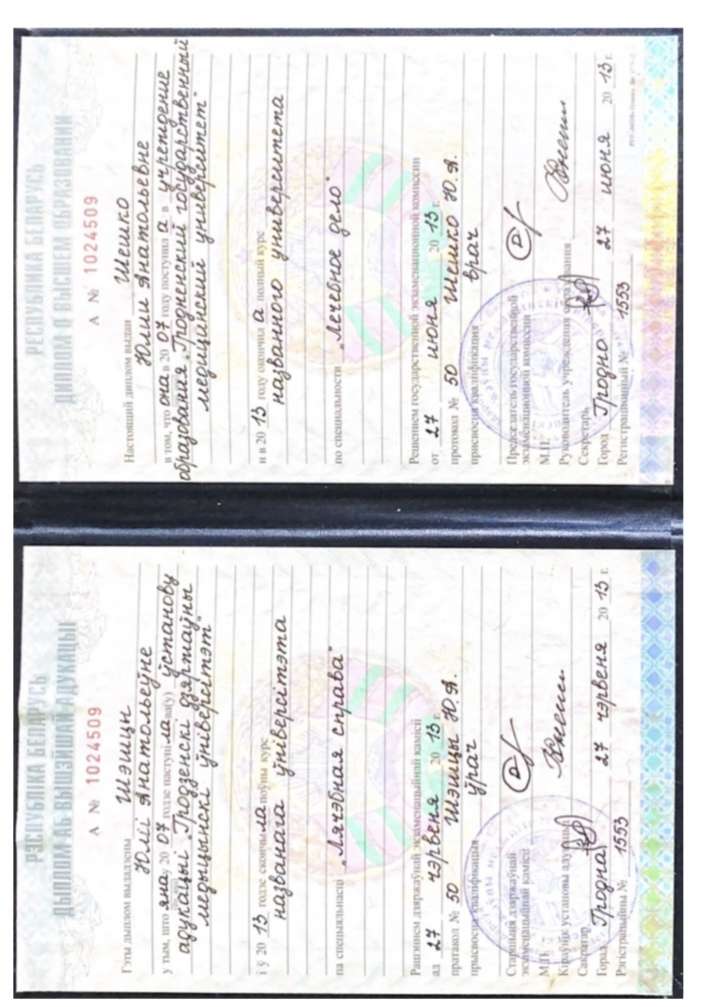 РЭСПУБЛІКА БЕЛАРУСЬ
ДЫПЛОМ АБ ВЫШЭЙШАЙ АДУКАЦЫІ
А № 1024509
Гэты дыплом выдадзены Шэшцы
Юліі Анатольеўне
у тым, што яна у 20 07 годзе паступіла ва(у) ўстанову
адукацыі „Гродзенскі дзяржаўны
медыцынскі ўніверсітэт"
і ў 20 13 годзе скончыла поўны курс
названага ўніверсітэта
па спецыяльнасці „Лячэбная справа"
Рашэннем дзяржаўнай экзаменацыйнай камісіі
ад 27 чэрвеня 20 13 г.
пратакол № 50 Шэшцы Ю.А.
прысвоена кваліфікацыя ўрач
Старшыня дзяржаўнай
экзаменацыйнай камісіі
М.П.
Кіраўнік установы адукацыі
Сакратар
Горад Гродна 27 чэрвеня 20 13 г.
Рэгістрацыйны № 1553
РЕСПУБЛИКА БЕЛАРУСЬ
ДИПЛОМ О ВЫСШЕМ ОБРАЗОВАНИИ
А № 1024509
Настоящий диплом выдан Шешко
Юлии Анатольевне
в том, что она в 20 07 году поступила в учреждение
образования „Гродненский государственный
медицинский университет"
и в 20 13 году окончила полный курс
названного университета
по специальности „Лечебное дело"
Решением государственной экзаменационной комиссии
от 27 июня 20 13 г.
протокол № 50 Шешко Ю.А.
присвоена квалификация врач
Председатель государственной
экзаменационной комиссии
М.П.
Руководитель учреждения образования
Секретарь
Город Гродно 27 июня 20 13 г.
Регистрационный № 1553